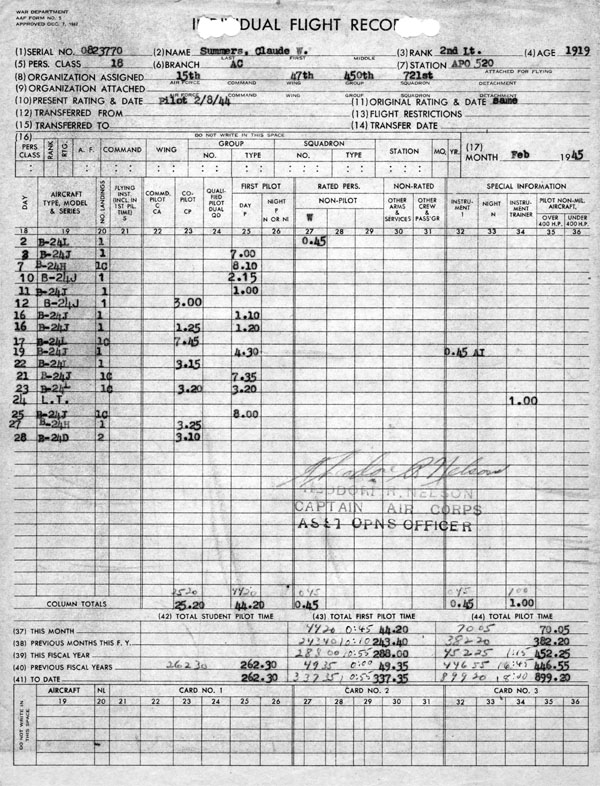 WAR DEPARTMENT
AAF FORM NO. 5
INDIVIDUAL FLIGHT RECORD
(1) SERIAL NO. 0823770 (2) NAME Summers, Claude W. (3) RANK 2nd Lt. (4) AGE 1919
LAST FIRST MIDDLE
(5) PERS. CLASS 18 (6) BRANCH AC (7) STATION APO 520
(8) ORGANIZATION ASSIGNED 15th 47th 450th 721st ATTACHED FOR FLYING
AIR FORCE COMMAND WING GROUP SQUADRON DETACHMENT
(9) ORGANIZATION ATTACHED
AIR FORCE COMMAND WING GROUP SQUADRON DETACHMENT
(10) PRESENT RATING & DATE Pilot 2/8/44 (11) ORIGINAL RATING & DATE Same
(12) TRANSFERRED FROM (13) FLIGHT RESTRICTIONS
(15) TRANSFERRED TO (14) TRANSFER DATE
(16) DO NOT WRITE IN THIS SPACE
PERS. CLASS RANK RTG. A. F. COMMAND WING GROUP NO. TYPE SQUADRON NO. TYPE STATION MO. YR. (17) MONTH Feb 1945
DAY AIRCRAFT TYPE, MODEL & SERIES NO. LANDINGS FLYING INST. (INCL. IN 1ST PIL. TIME) S COMMD. PILOT C CA CO-PILOT CP QUALIFIED PILOT DUAL QD FIRST PILOT DAY P NIGHT P N OR NI RATED PERS. NON-PILOT W NON-RATED OTHER ARMS & SERVICES OTHER CREW & PASS'GR SPECIAL INFORMATION INSTRUMENT I NIGHT N INSTRUMENT TRAINER PILOT NON-MIL. AIRCRAFT OVER 400 H.P. UNDER 400 H.P.
18 19 20 21 22 23 24 25 26 27 28 29 30 31 32 33 34 35 36
2 B-24L 1 0.45
B-24J 1 7.00
7 B-24H 1C 8.10
10 B-24J 1 2.15
11 B-24J 1 1.00
12 B-24J 1 3.00
16 B-24J 1 1.10
16 B-24J 1 1.25 1.20
17 B-24L 1C 7.45
19 B-24J 1 4.30 0.45 AI
22 1 3.15
21 B-24J 1C 7.35
23 B-24L 1C 3.20 3.20
24 L.T. 1.00
25 B-24J 1C 8.00
27 B-24H 1 3.25
28 B-24D 2 3.10
Theodore R. Nelson
THEODORE R. NELSON
CAPTAIN AIR CORPS
ASST OPNS OFFICER
2520 4420 045 045 100
COLUMN TOTALS 25.20 44.20 0.45 0.45 1.00
(42) TOTAL STUDENT PILOT TIME (43) TOTAL FIRST PILOT TIME (44) TOTAL PILOT TIME
(37) THIS MONTH 4420 0:45 44.20 7005 70.05
(38) PREVIOUS MONTHS THIS F. Y. 24340 0:10 243.40 38220 382.20
(39) THIS FISCAL YEAR 28800 0:55 288.00 45225 452.25
(40) PREVIOUS FISCAL YEARS 26230 262.30 4935 0:00 49.35 44655 446.55
(41) TO DATE 262.30 33735 0:55 337.35 89920 899.20
DO NOT WRITE IN THIS SPACE
AIRCRAFT NL CARD NO. 1 CARD NO. 2 CARD NO. 3
19 20 21 22 23 24 25 26 27 28 29 30 31 32 33 34 35 36